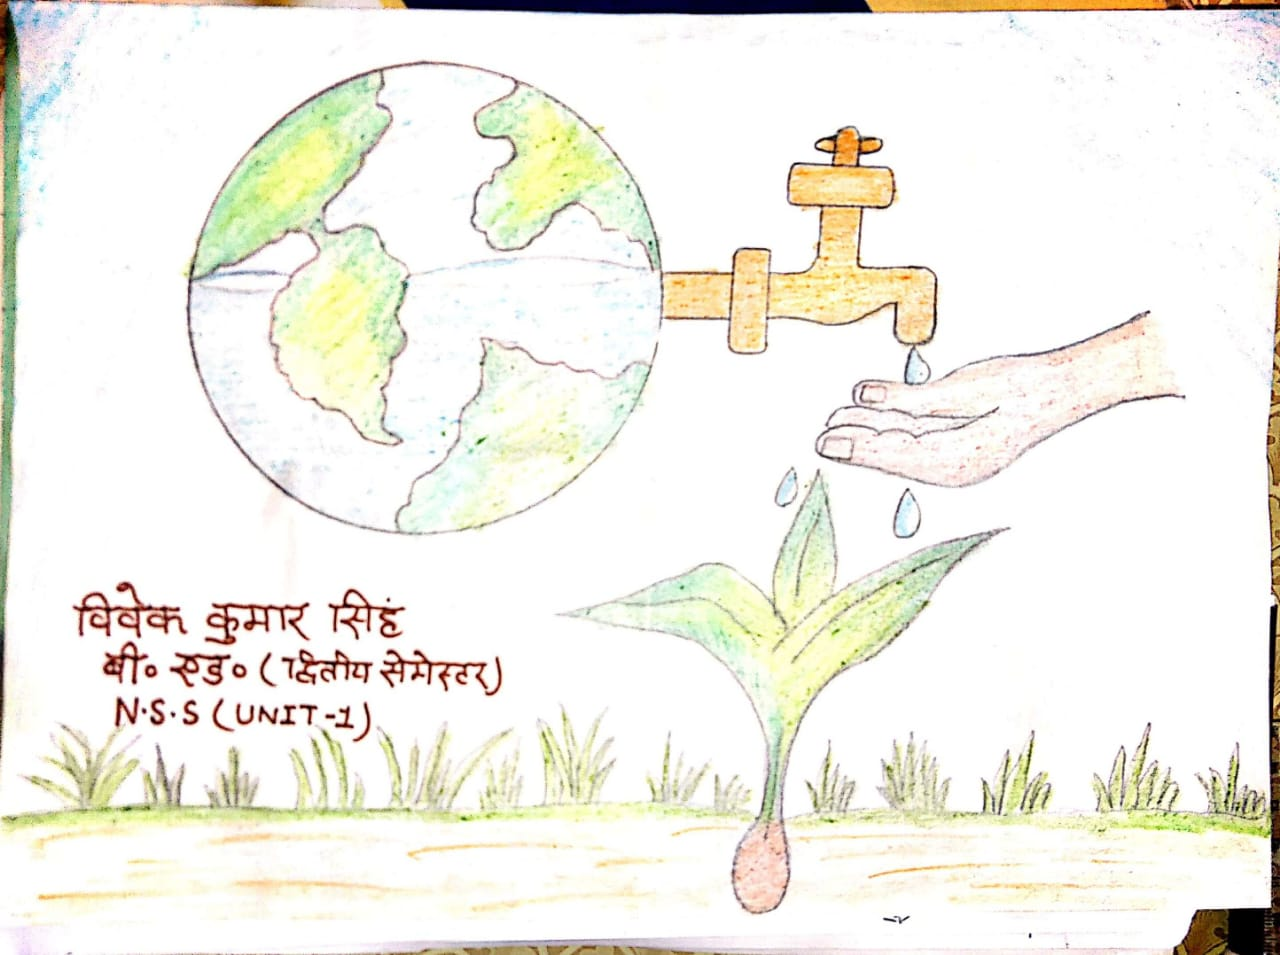 विवेक कुमार सिहं
बी० एड० (द्वितीय सेमेस्टर)
N.S.S (UNIT-1)